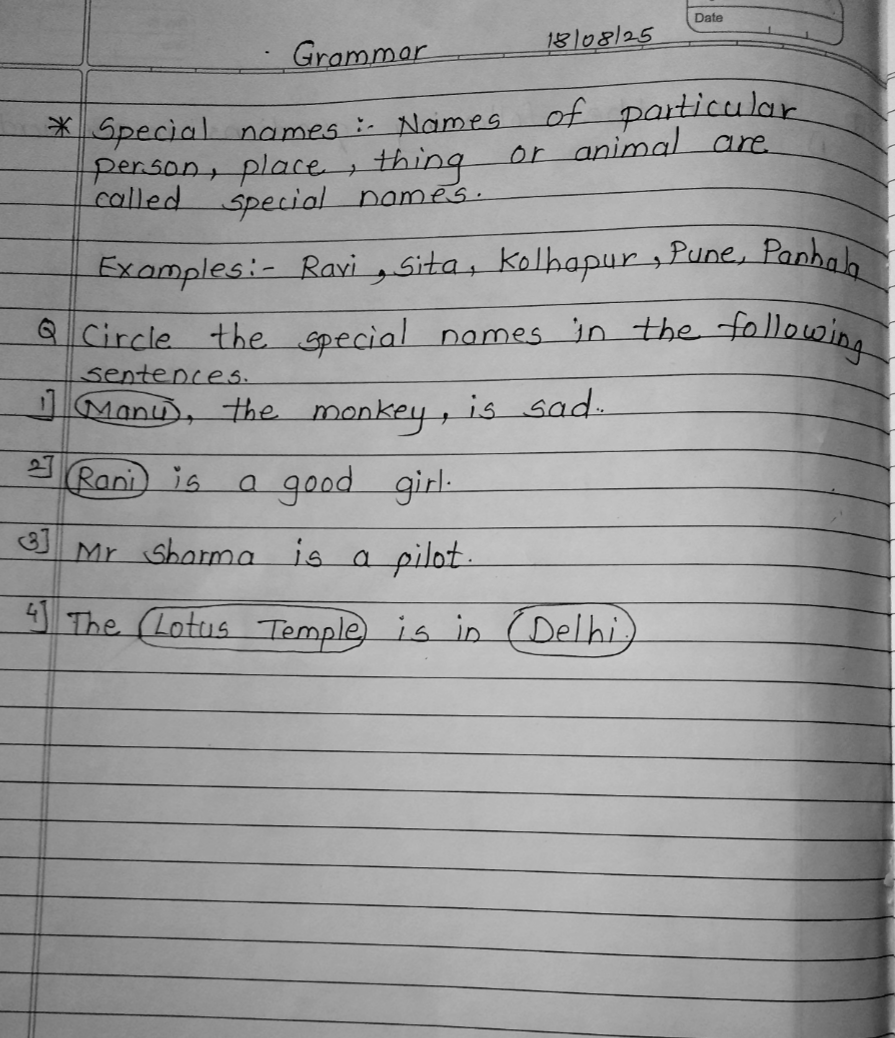 Date
Grammar 18/08/25
* Special names :- Names of particular
person, place, thing or animal are
called special names.
Examples:- Ravi, Sita, Kolhapur, Pune, Panhala
Q Circle the special names in the following
sentences.
1] Manu, the monkey, is sad.
2] Rani is a good girl.
(3] Mr Sharma is a pilot.
4] The Lotus Temple is in Delhi.